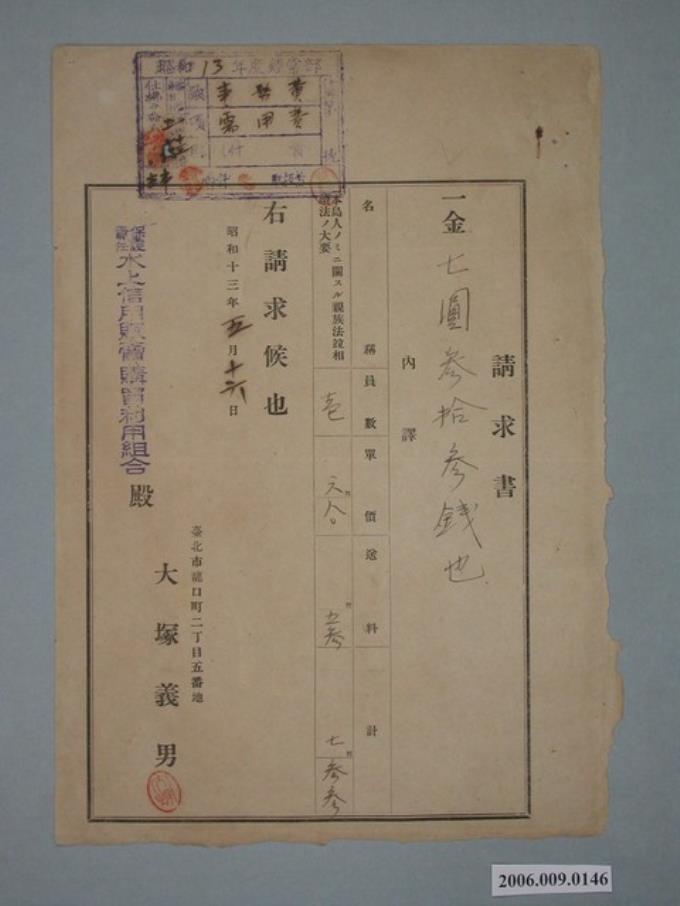 昭和13年度經常部
款 事務費
項 需用費
請求書
一金七圓參拾參錢也
內譯
名稱 員數 單價 送料 計
本島人ノミニ關スル親族法竝相
續法ノ大要 壱 六八〇 五參 七參參
右請求候也
昭和十三年五月十六日
保證
責任 水上信用販賣購買利用組合 殿
臺北市龍口町二丁目五番地
大塚義男
2006.009.0146